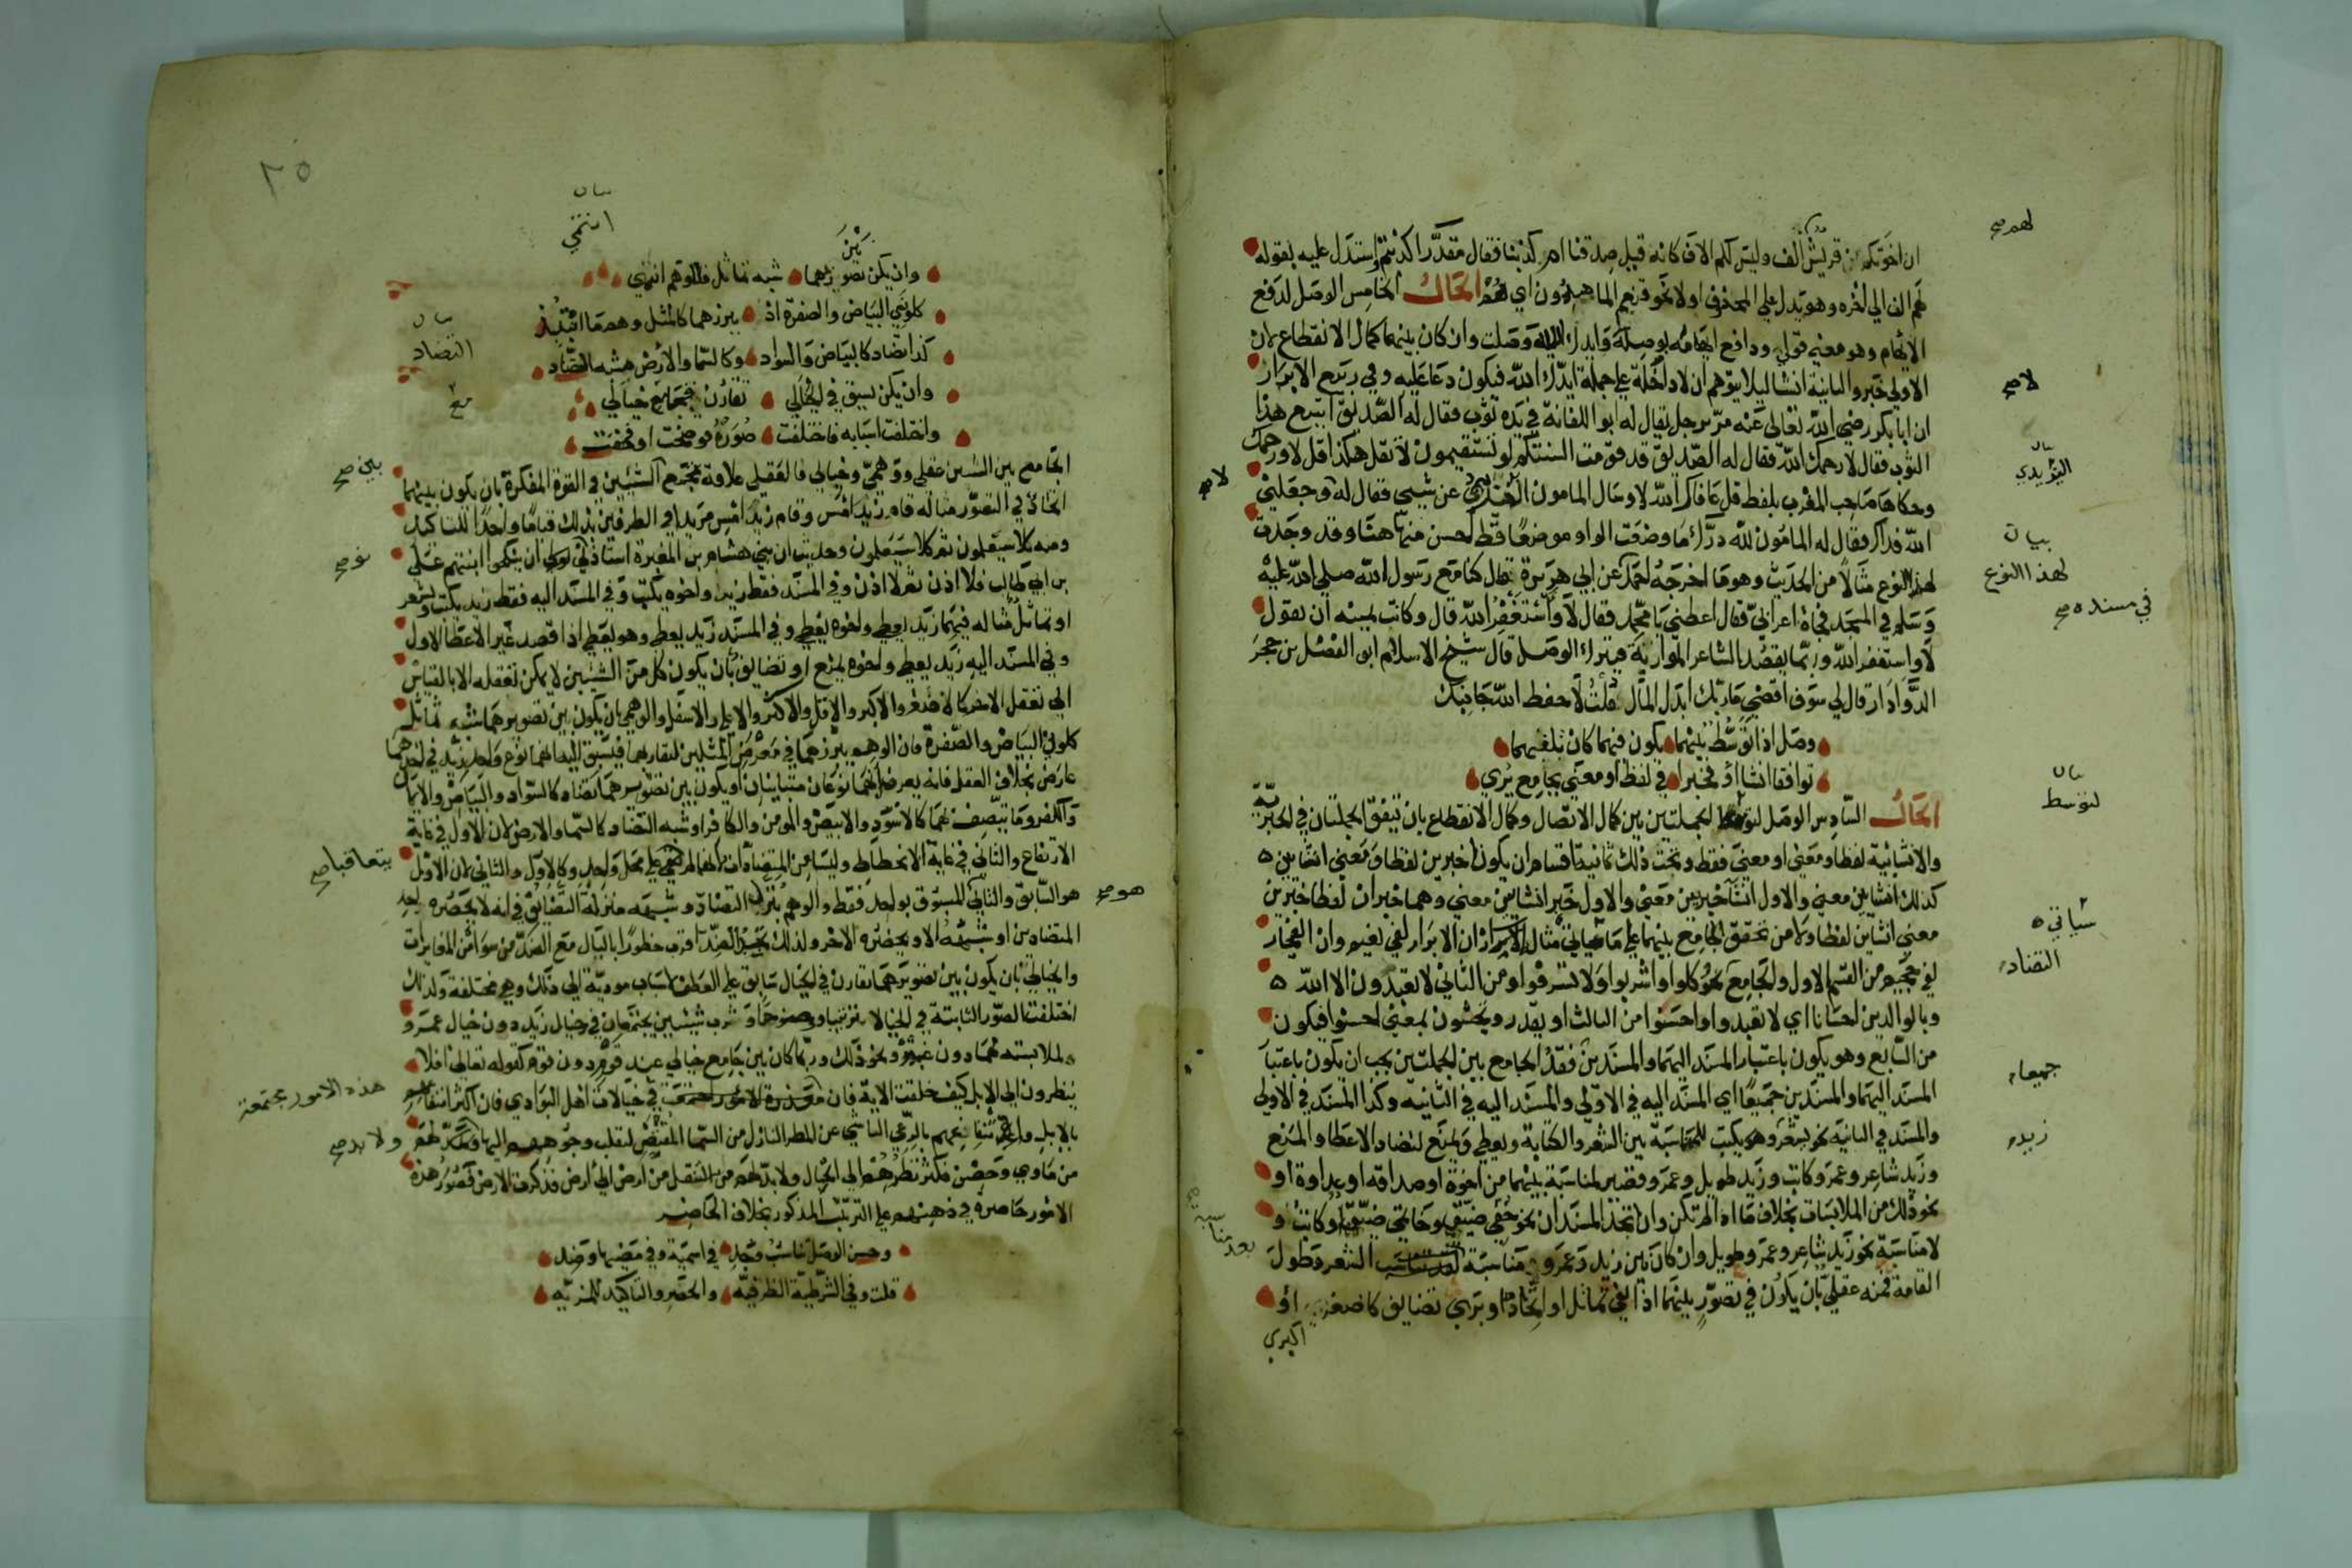 ان اخوتكم من قريش الف وليس لكم الاف كانه قيل صدقنا ام كذبنا فقال مقدرا كذبتم واستدل عليه بقوله
لهم الف الي اخره وهو يدل علي المحذوف اولا نحو فنعم الماهدون اي هم الحال الخامس الوصل لدفع
الايهام وهو معني قولي ودافع ايهامه بوصله وايدك الله وصلت وان كان بينهما كمال الانقطاع لان
الاولي خبر والثانية انشا ليلا يتوهم ان لا داخلة علي جملة ايدك الله فيكون دعا عليه وفي ربيع الابرار
ان ابا بكر رضي الله تعالي عنه مر برجل يقال له ابو اللفانة في يده ثوب فقال له الصديق اتبيع هذا
الثوب فقال لا رحمك الله فقال له الصديق قد قومت السنتكم لو تستقيمون لا تقل هكذا قل لا ورحمك
وحكاها صاحب المغرب بلفظ قل عافاك الله لا وسال المامون اليزيدي عن شيي فقال له لا وجعلني
الله فداك فقال له المامون لله درك ما وضعت الواو موضعا قط احسن منها هنا وقد وجدت
لهذا النوع مثالا من الحديث وهو ما اخرجه احمد عن ابي هريرة قال كنا مع رسول الله صلي الله عليه
وسلم في المسجد فجاة اعرابي فقال اعطني يا محمد فقال لا واستغفر الله قال وكانت يمينه ان يقول
لا واستغفر الله وربما يقصد الشاعر الموازنة فيترك الوصل قال شيخ الاسلام ابو الفضل بن حجر
الدوادار قال لي سوف اقضي ماربك ابذل المال قلت لا حفظ الله جانبك
وصل اذا توسط بينهما يكون فيهما كان تلفيهما
توافقا انشا او فخبرا في لفظ او معني بجامع يري
الحال السادس الوصل لتوسط الجملتين بين كمال الاتصال وكمال الانقطاع بان تتفق الجملتان في الخبرية
والانشائية لفظا ومعني او معني فقط وتحت ذلك ثمانية اقسام ان يكونا خبرين لفظا ومعني انشاين
كذلك انشاين معني والاول انشا خبرين معني والاول خبر انشاين معني وهما خبران لفظا خبرين
معني انشاين لفظا ولا من تحقق الجامع بينهما علي ما سياتي مثال الابرار ان الابرار لفي نعيم وان الفجار
لفي جحيم من القسم الاول والجامع نحو كلوا واشربوا ولا تسرفوا ومن الثاني لا تعبدون الا الله
وبالوالدين احسانا اي لا تعبدوا واحسنوا من الثالث او يقدر وتحسنون بمعني احسنوا فيكون
من السابع وهو يكون باعتبار المسند اليهما والمسندين فقد الجامع بين الجملتين يجب ان يكون باعتبا
المسند اليهما والمسندين جميعا اي المسند اليه في الاولي والمسند اليه في الثانية وكذا المسند في الاولي
والمسند في الثانية نحو يشعر وهو يكتب للمناسبة بين الشعر والكتابة ويعطي ويمنع لتضاد الاعطا والمنع
وزيد شاعر وعمرو كاتب وزيد طويل وعمرو قصير لمناسبة بينهما من اخوة او صداقة او عداوة او
نحو ذلك من الملابسات بخلاف ما اذا لم تكن وان اتحد المسندان نحو خفي ضيق وخاتمي ضيق او كانت
لا مناسبة نحو زيد شاعر وعمرو طويل وان كان بين زيد وعمرو مناسبة الشعر وطول
القامة فمنه عقلي بان يكون في تصور بينهما اذا الفي تماثل او اتحاد او بري تضايف كاصغر او
اكبري
لهم صح
لا صح
بيان
اليزيدي
بيان
لهذا النوع
في مسنده صح
لا صح
بيان
لتوسط
سياتي
التضاد
جميعا
زيد
بعد مناسبة
٢٥
بيان
انتمي
بين
وان يكن تصويرهما شبه تماثل فللوهم انتمي
كلوني البياض والصفرة اذ يبرزهما كالمثل وهما
كذا تضاد كالبياض والسواد وكالسما والارض شبه التضاد
وان يكن يسبق في الخيالي تقارن فجامع خيالي
واختلفت اسبابه فاختلفت صوره فوضحت او فخفت
الجامع بين الشيئين عقلي ووهمي وخيالي فالعقلي علاقة تجمع الشيئين في القوة المفكرة بان يكون بينهما
اتحاد في التصور مثاله قام زيد امس وقام زيد امس مريدا في الطرفين بذلك قياما واحدا للتاكيد
ومنه كلا سيعلمون ثم كلا سيعلمون وحديث ان بني هشام بن المغيرة استاذنوني ان ينكحوا ابنتهم علي
بن ابي طالب فلا اذن ثم لا اذن وفي المسند فقط زيد واخوه يكتب وفي المسند اليه فقط زيد يكتب ويشعر
او تماثل مثاله فيهما زيد يعطي واخوه يعطي وفي المسند زيد يعطي وهو يعطي اذا قصد غير الاعطا الاول
وفي المسند اليه زيد يعطي واخوه يمنع او تضايف بان يكون كل من الشيئين لا يمكن تعقله الا بالقياس
الي تعقل الاخر كالاصغر والاكبر والاقل والاكثر والاعلي والاسفل والوهمي بان يكون بين تصويرهما شبه تماثل
كلوني البياض والصفرة فان الوهم يبرزهما في معرض المثلين لتقاربهما فيسبق اليه انهما نوع واحد زيد في احدهما
عارض بخلاف العقل فانه يعرف انهما نوعان متباينان او يكون بين تصويرهما تضاد كالسواد والبياض والايمان
والكفر وما يتصف بهما كالاسود والابيض والمومن والكافر او شبه التضاد كالسما والارض لان الاول في غاية
الارتفاع والثاني في غاية الانحطاط وليسا من المتضادان انهما لم علي محل واحد وكالاول والثاني لان الاول
هو السابق والثاني المسبوق بواحد فقط والوهم ينزل التضاد وشبهه منزلة التضايف في انه لا يحضره احد
المتضادين او شبهه الا ويحضره الاخر ولذلك تجد الضد اقرب خطورا بالبال مع الضد من سوائر المغايرات
والخيالي بان يكون بين تصويرهما تقارن في الخيال سابق علي العطف لاسباب مودية الي ذلك وهي مختلفة ولذلك
اختلفت الصور الثابتة في الخيالا ترتيبا ووضوحا ورب شيئين يجتمعان في خيال زيد دون خيال عمرو
لملابسته لهما دون غيره ونحو ذلك وربما كان بين جامع خيالي عند قوم دون قوم كقوله تعالي افلا
ينظرون الي الابل كيف خلقت الاية فان في خيالات اهل البوادي فان اكثر انتفاعهم
بالابل وانتفاعهم بالرعي الناشي عن المطر النازل من السما المقتضي لتقلب وجوههم اليها
من ماوي وحصن فكثر نظرهم الي الجبال ولا بد لهم من التنقل من ارض الي ارض فذكرت الارض فصور هذه
الامور حاضرة في ذهنهم علي الترتيب المذكور بخلاف الحاضر
وحسن الوصل تناسب وجد في اسمية وفي مضيها وضد
قلت وفي الشرطية الظرفية والحصر والتاكيد للمزيه
بيان
التضاد
بين صح
يتعاقبا صح
هو صح
هذه الامور مجتمعة
ولا بد صح